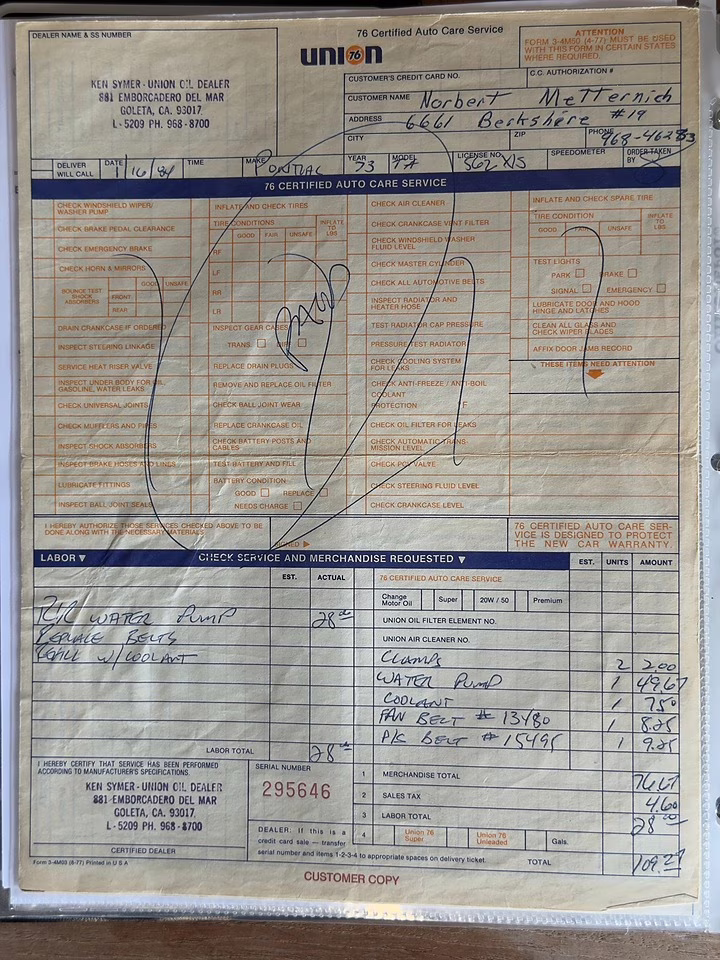 DEALER NAME & SS NUMBER
76 Certified Auto Care Service
UNION 76
ATTENTION
FORM 3-4M50 (4-77) MUST BE USED
WITH THIS FORM IN CERTAIN STATES
WHERE REQUIRED.
KEN SYMER - UNION OIL DEALER
881 EMBORCADERO DEL MAR
GOLETA, CA. 93017
L-5209 PH. 968-8700
CUSTOMER'S CREDIT CARD NO.
C.C. AUTHORIZATION #
CUSTOMER NAME Norbert Metternich
ADDRESS 6661 Berkshire #19
CITY ZIP PHONE
DELIVER WILL CALL DATE 1/16/84 TIME MAKE PONTIAC YEAR 73 MODEL TA LICENSE NO. 562 XIS SPEEDOMETER ORDER TAKEN BY
76 CERTIFIED AUTO CARE SERVICE
CHECK WINDSHIELD WIPER/
WASHER PUMP
CHECK BRAKE PEDAL CLEARANCE
CHECK EMERGENCY BRAKE
CHECK HORN & MIRRORS
GOOD UNSAFE
BOUNCE TEST
SHOCK
ABSORBERS
FRONT
REAR
DRAIN CRANKCASE IF ORDERED
INSPECT STEERING LINKAGE
SERVICE HEAT RISER VALVE
INSPECT UNDER BODY FOR OIL,
GASOLINE, WATER LEAKS
CHECK UNIVERSAL JOINTS
CHECK MUFFLERS AND PIPES
INSPECT SHOCK ABSORBERS
INSPECT BRAKE HOSES AND LINES
LUBRICATE FITTINGS
INSPECT BALL JOINT SEALS
INFLATE AND CHECK TIRES
TIRE CONDITIONS
INFLATE TO LBS
GOOD FAIR UNSAFE
RF
LF
RR
LR
PAID
INSPECT GEAR CASES
TRANS DIFF
REPLACE DRAIN PLUGS
REMOVE AND REPLACE OIL FILTER
CHECK BALL JOINT WEAR
REPLACE CRANKCASE OIL
CHECK BATTERY POSTS AND
CABLES
TEST BATTERY AND FILL
BATTERY CONDITION
GOOD REPLACE
NEEDS CHARGE
CHECK AIR CLEANER
CHECK CRANKCASE VENT FILTER
CHECK WINDSHIELD WASHER
FLUID LEVEL
CHECK MASTER CYLINDER
CHECK ALL AUTOMOTIVE BELTS
INSPECT RADIATOR AND
HEATER HOSE
TEST RADIATOR CAP PRESSURE
PRESSURE TEST RADIATOR
CHECK COOLING SYSTEM
FOR LEAKS
CHECK ANTI-FREEZE / ANTI-BOIL
COOLANT
PROTECTION F
CHECK OIL FILTER FOR LEAKS
CHECK AUTOMATIC TRANS-
MISSION LEVEL
CHECK PCV VALVE
CHECK STEERING FLUID LEVEL
CHECK CRANKCASE LEVEL
INFLATE AND CHECK SPARE TIRE
TIRE CONDITION
INFLATE TO LBS
GOOD FAIR UNSAFE
TEST LIGHTS
PARK BRAKE
SIGNAL EMERGENCY
LUBRICATE DOOR AND HOOD
HINGE AND LATCHES
CLEAN ALL GLASS AND
CHECK WIPER BLADES
AFFIX DOOR JAMB RECORD
THESE ITEMS NEED ATTENTION
I HEREBY AUTHORIZE THOSE SERVICES CHECKED ABOVE TO BE
DONE ALONG WITH THE NECESSARY MATERIALS
SIGNED
76 CERTIFIED AUTO CARE SER-
VICE IS DESIGNED TO PROTECT
THE NEW CAR WARRANTY.
LABOR ▼ CHECK SERVICE AND MERCHANDISE REQUESTED ▼ EST. UNITS AMOUNT
EST. ACTUAL
76 CERTIFIED AUTO CARE SERVICE
Change
Motor Oil Super 20W / 50 Premium
R/R WATER PUMP 28 00
REPLACE BELTS
REFILL W/COOLANT
UNION OIL FILTER ELEMENT NO.
UNION AIR CLEANER NO.
CLAMPS 2 2.00
WATER PUMP 1 49.67
COOLANT 1 7.50
FAN BELT # 13480 1 8.25
P/S BELT # 15495 1 9.25
LABOR TOTAL 28 00
I HEREBY CERTIFY THAT SERVICE HAS BEEN PERFORMED
ACCORDING TO MANUFACTURER'S SPECIFICATIONS.
KEN SYMER - UNION OIL DEALER
881 EMBORCADERO DEL MAR
GOLETA, CA. 93017
L-5209 PH. 968-8700
CERTIFIED DEALER
SERIAL NUMBER
295646
DEALER. If this is a
credit card sale — transfer
serial number and items 1-2-3-4 to appropriate spaces on delivery ticket.
1 MERCHANDISE TOTAL 76.67
2 SALES TAX 4.60
3 LABOR TOTAL 28 00
4 Union 76 Super Union 76 Unleaded Gals.
TOTAL 109.27
Form 3-4M03 (6-77) Printed in U S A
CUSTOMER COPY